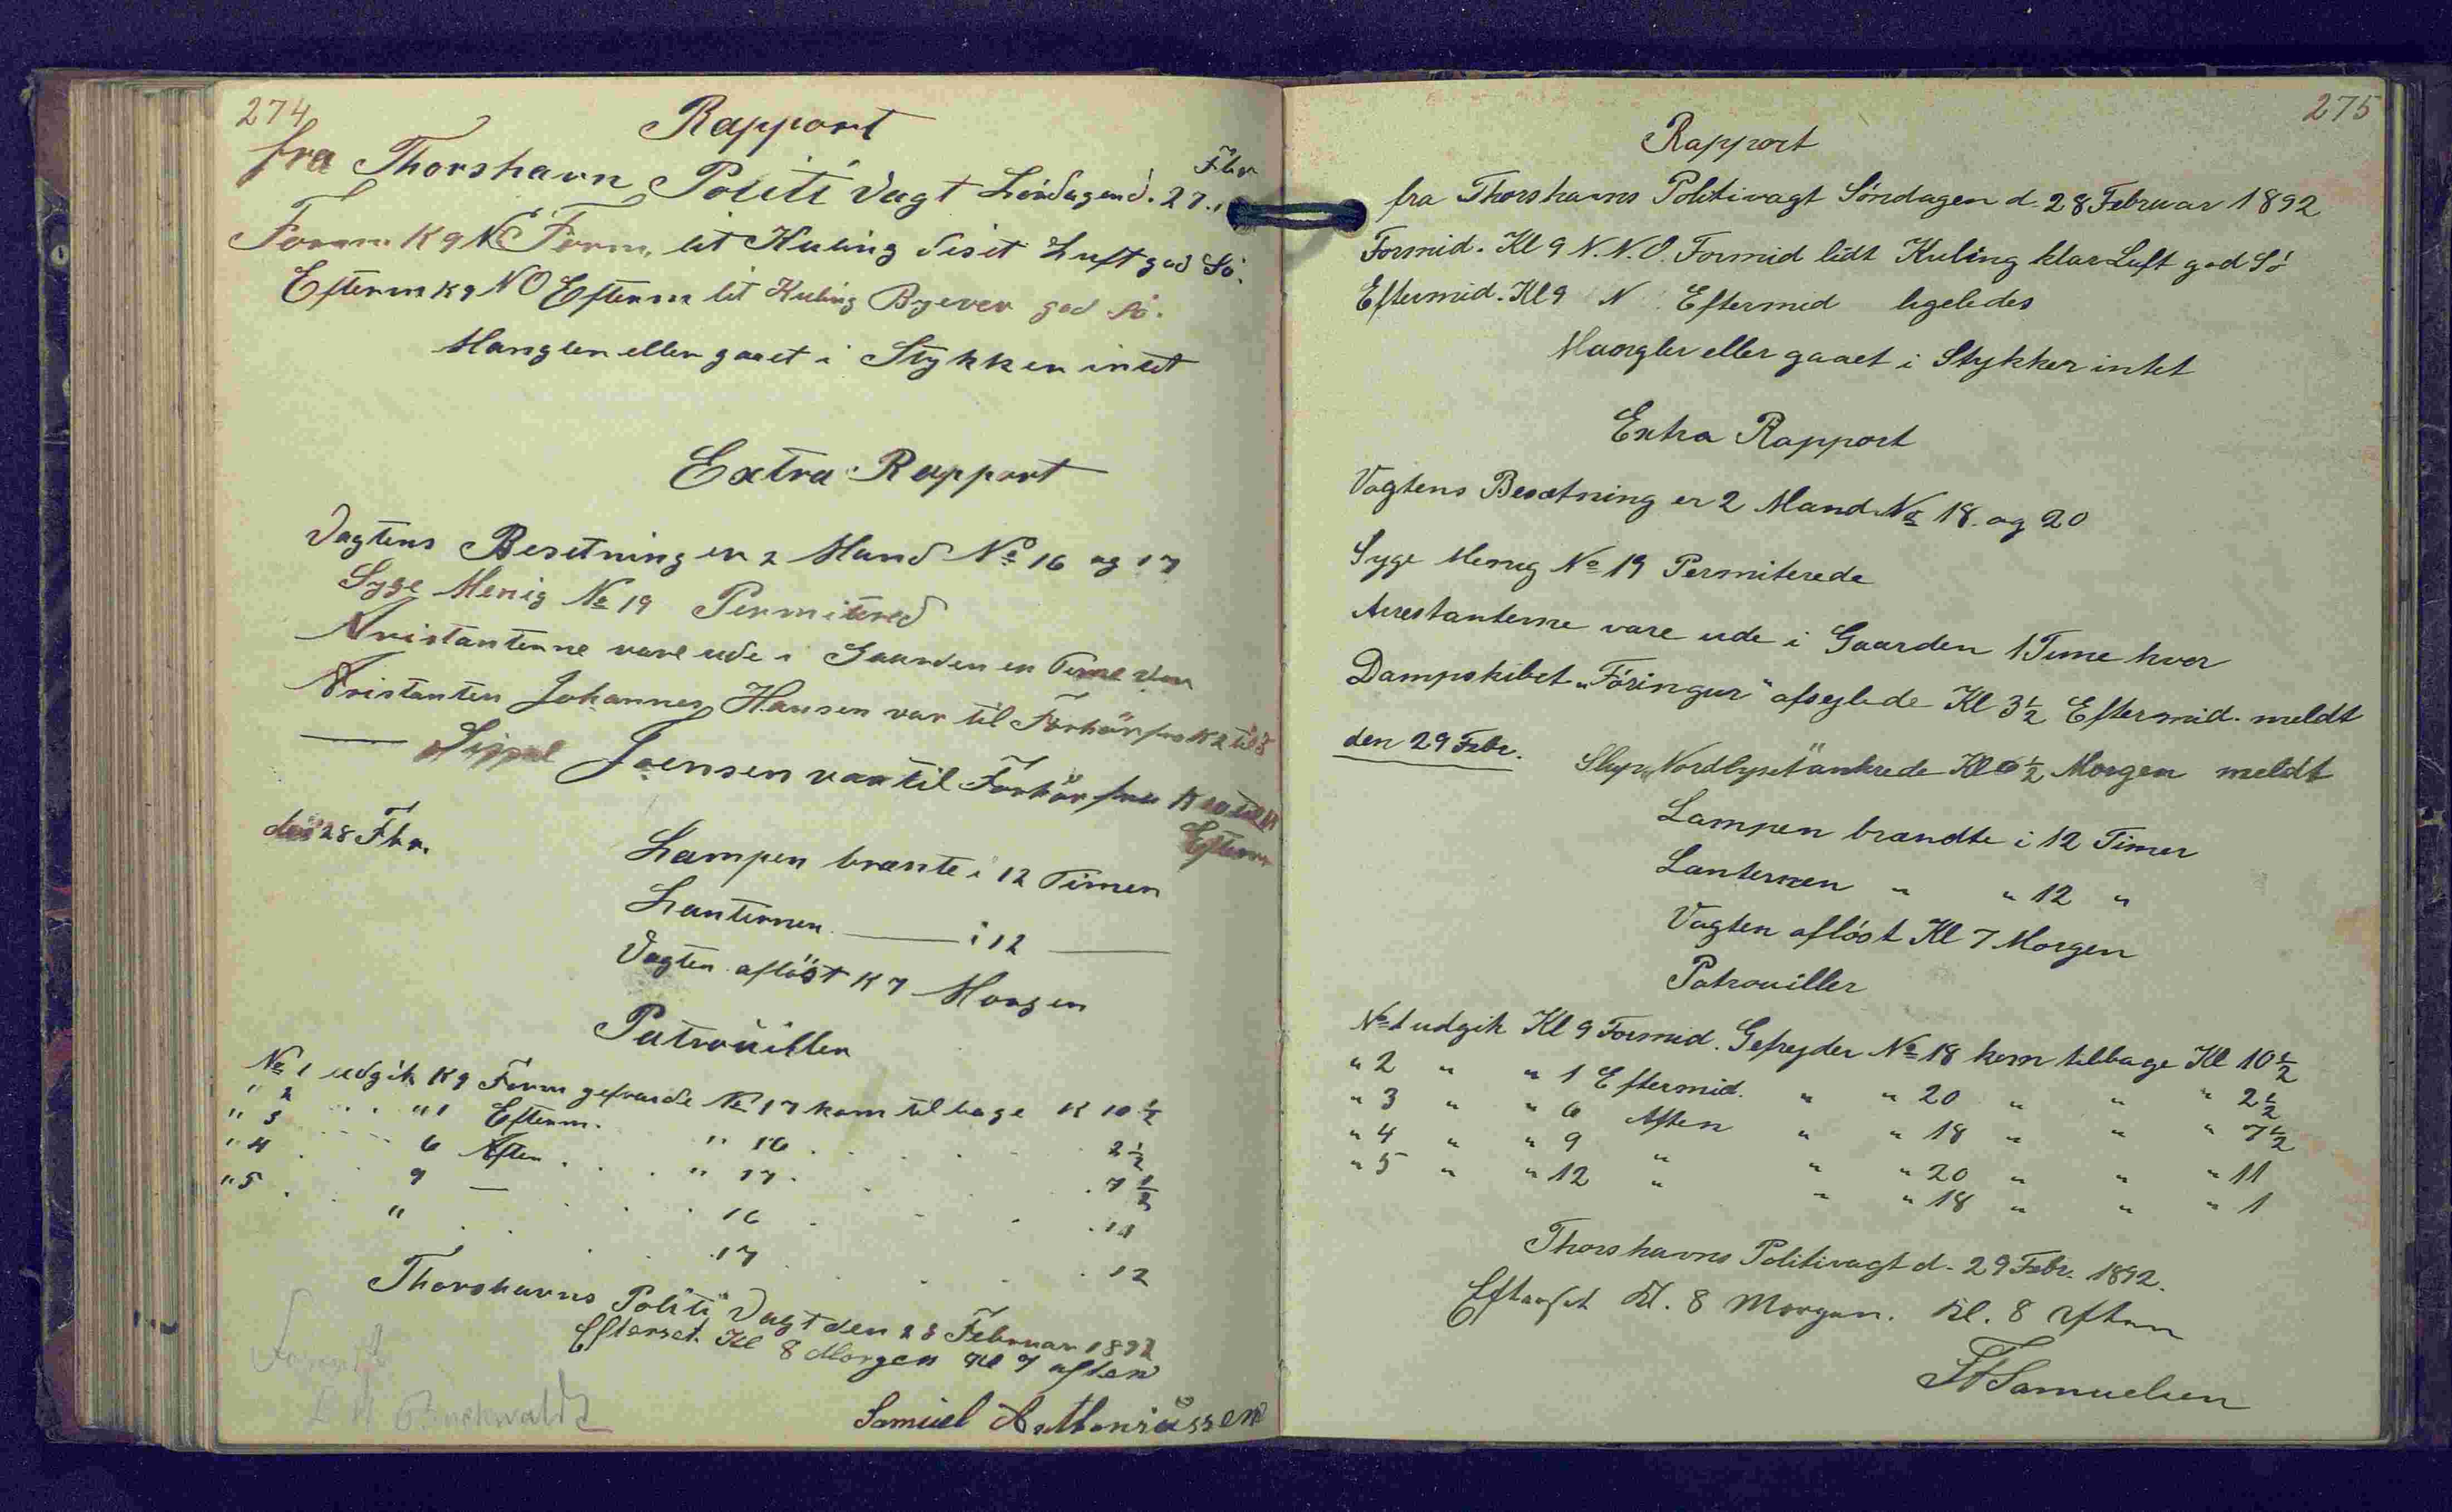 274
Rapport
fra Thorshavn Politi Vagt Løvdagen d. 27. Fbr
Form K 9 NO Form. lit Kuling diset Luft god Sö.
Efterm K 9 NO Efterm lit Kuling Byever god Sö.
Mangler eller gaaet i Stykker intet
Extra Rapport
Vagtens Besetning er 2 Mand No 16 og 17
Syge Menig No 19 Permitered
Aristanterne vare ude i Gaarden en Time
Aristanten Johannes Hansen var til Forhör fra K 2 til
—— Joensen var til Forhör fra K 10 til
Efterm
den 28 Fbr.
Lampen brante i 12 Timer
Lanternen —— i 12 ——
Vagten aflöst K 7 Morgen
Patrouiller
No 1 udgik K 9 Form gefraide No 17 kom tilbage K 10 1/2
" 2 " 1 Efterm. " 16 2 1/2
" 3 6 Aften " 17 7 1/2
" 4 9 — 16 11
" 5 " 17 12
Thorshavns Politi Vagt den 28 Februar 1892
Efterset Kl 8 Morgen Kl 7 aften
Samuel
275
Rapport
fra Thorshavns Politivagt Söndagen d. 28 Februar 1892
Formid. Kl 9 N.N.O. Formid lidt Kuling klar Luft god Sö
Eftermid. Kl 9 N Eftermid ligeledes
Mangler eller gaaet i Stykker intet
Extra Rapport
Vagtens Besætning er 2 Mand No 18. og 20
Syge Menig No 19 Permiterede
Arrestanterne vare ude i Gaarden 1 Time hver
Dampskibet „Föringur" afseglede Kl 3 1/2 Eftermid. meldt
den 29 Febr. Slup „Nordlyset" ankrede Kl 6 1/2 Morgen meldt
Lampen brandte i 12 Timer
Lanternen " " 12 "
Vagten aflöst Kl 7 Morgen
Patrouiller
No 1 udgik Kl 9 Formid. Gefrejder No 18 kom tilbage Kl 10 1/2
" 2 " " 1 Eftermid. " " 20 " " " 2 1/2
" 3 " " 6 Aften " " 18 " " " 7 1/2
" 4 " " 9 " " " 20 " " " 11
" 5 " " 12 " " " 18 " " " 1
Thorshavns Politivagt d. 29 Febr. 1892.
Efterset Kl. 8 Morgen. Kl. 8 Aften
Samuelsen